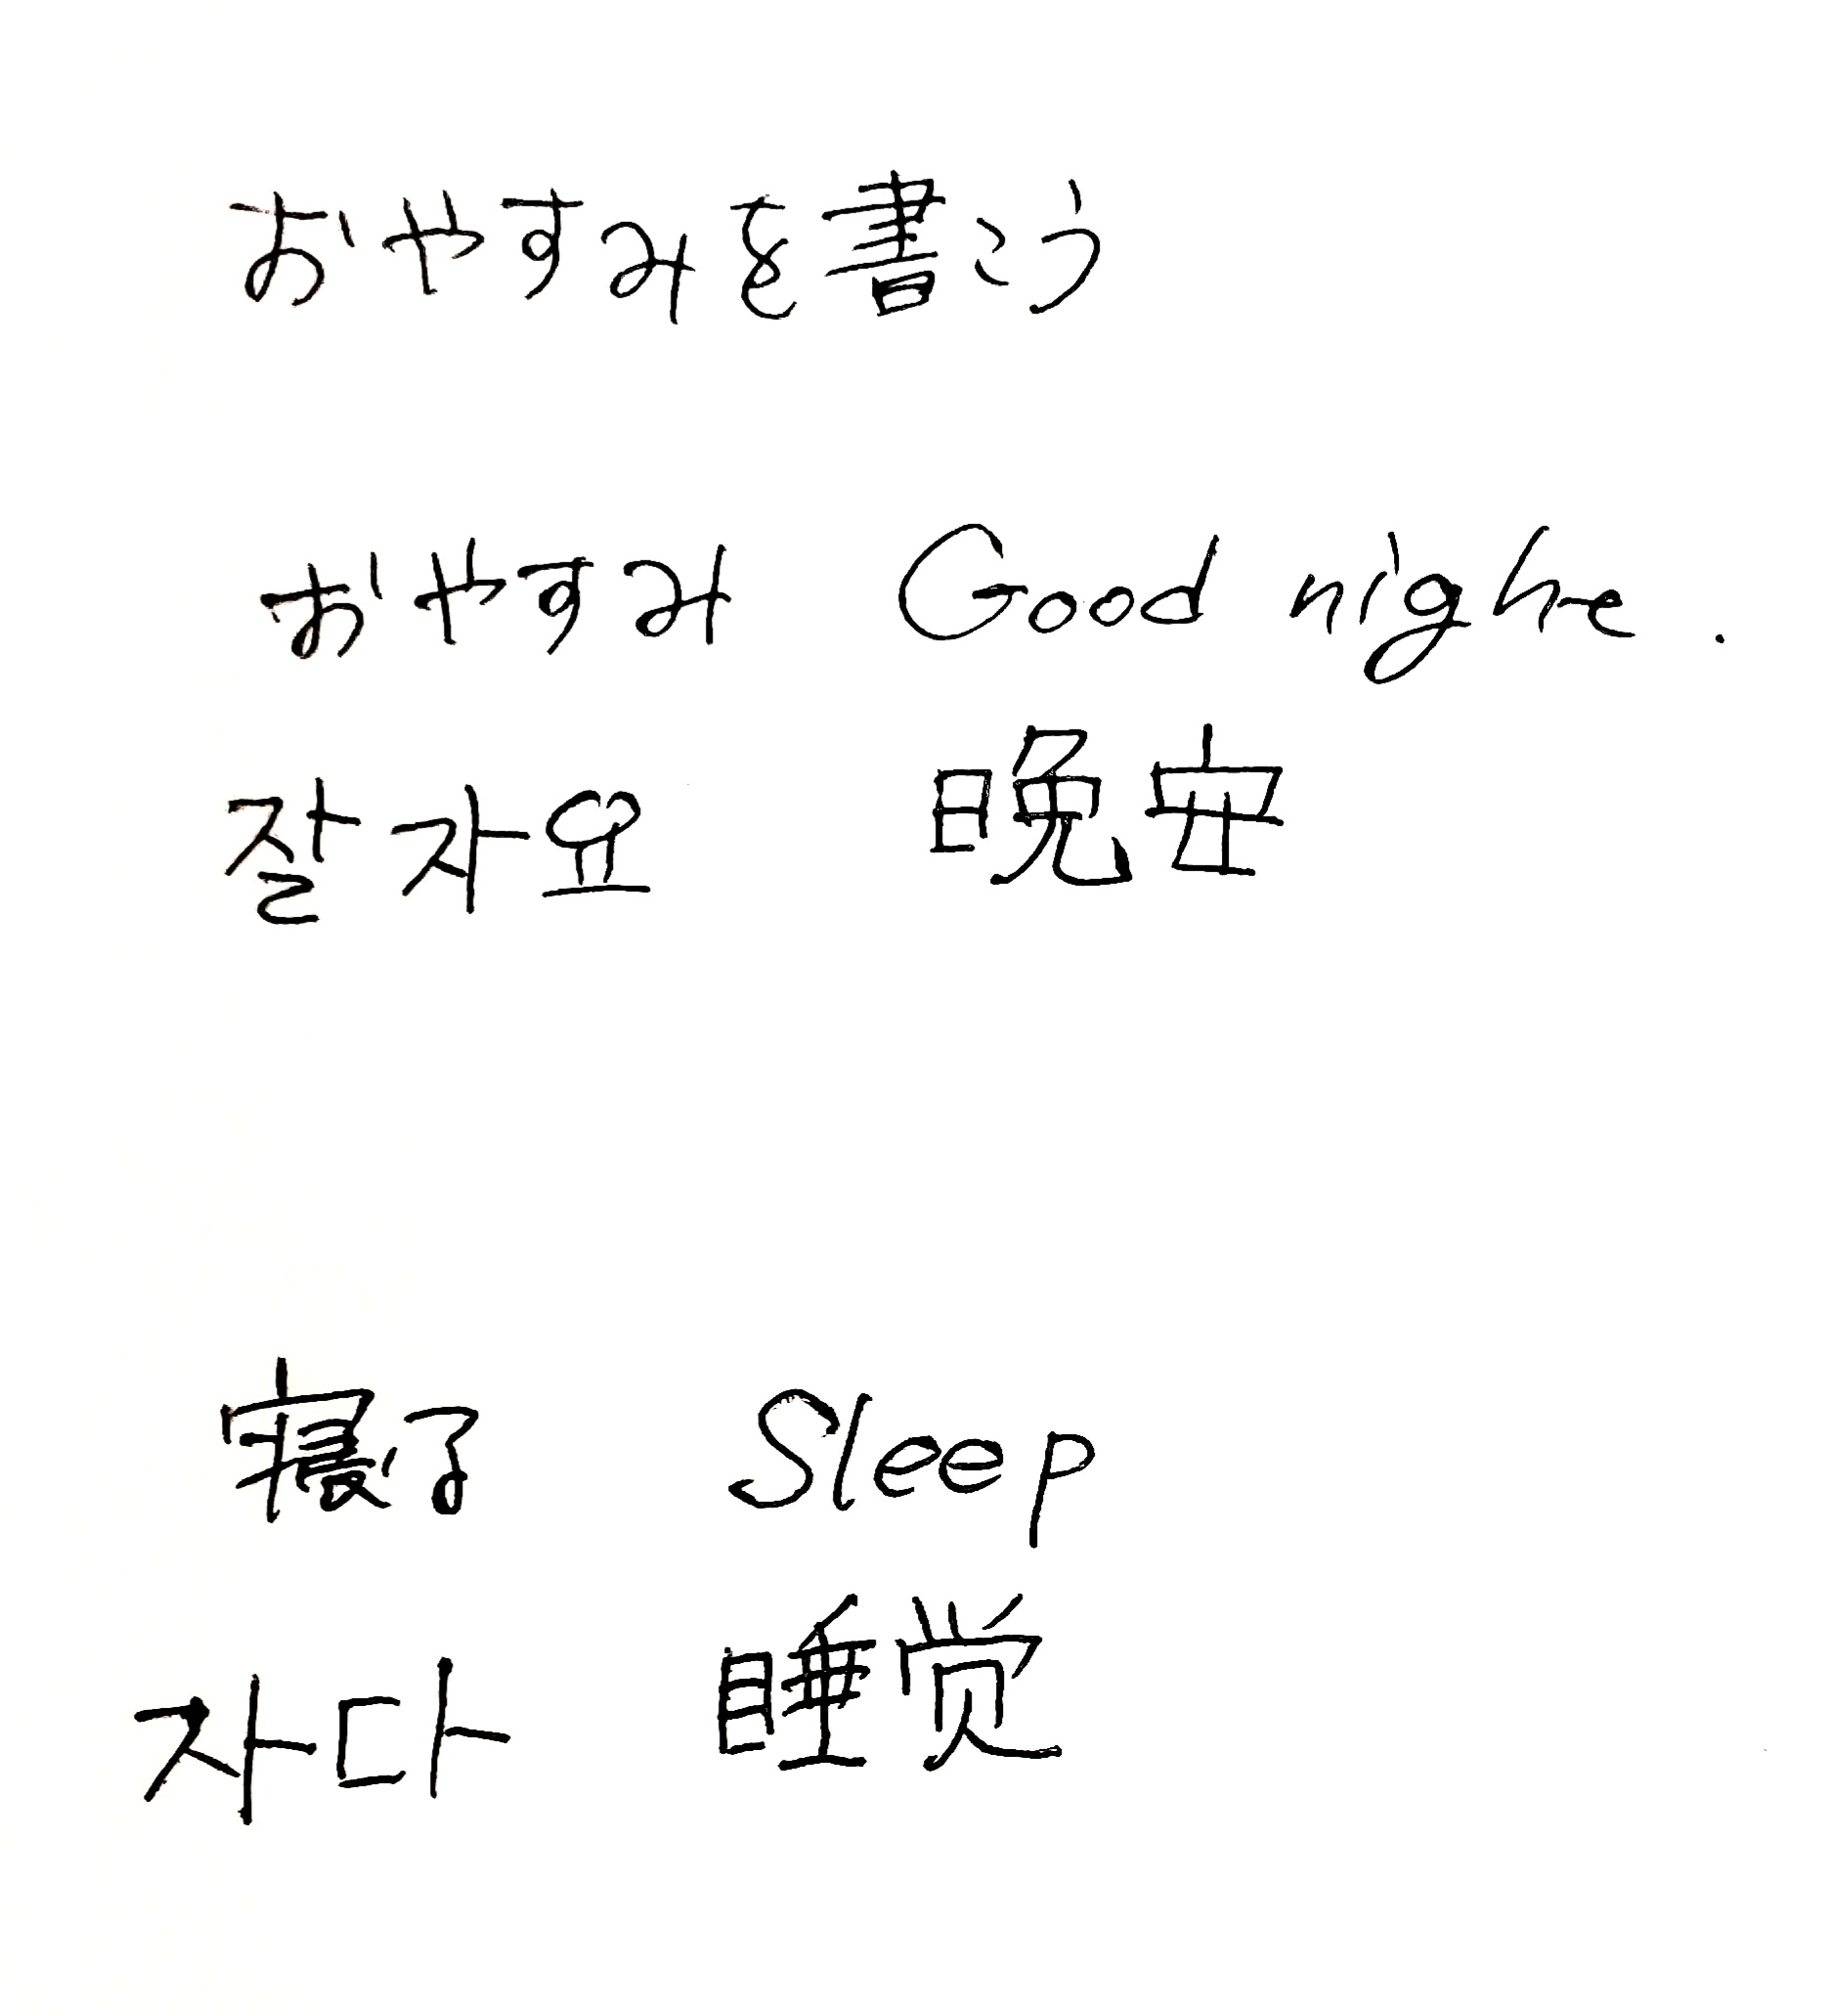 おやすみを書こう
おやすみ Good night.
잘자요 晩安
寝る Sleep
자다 睡觉